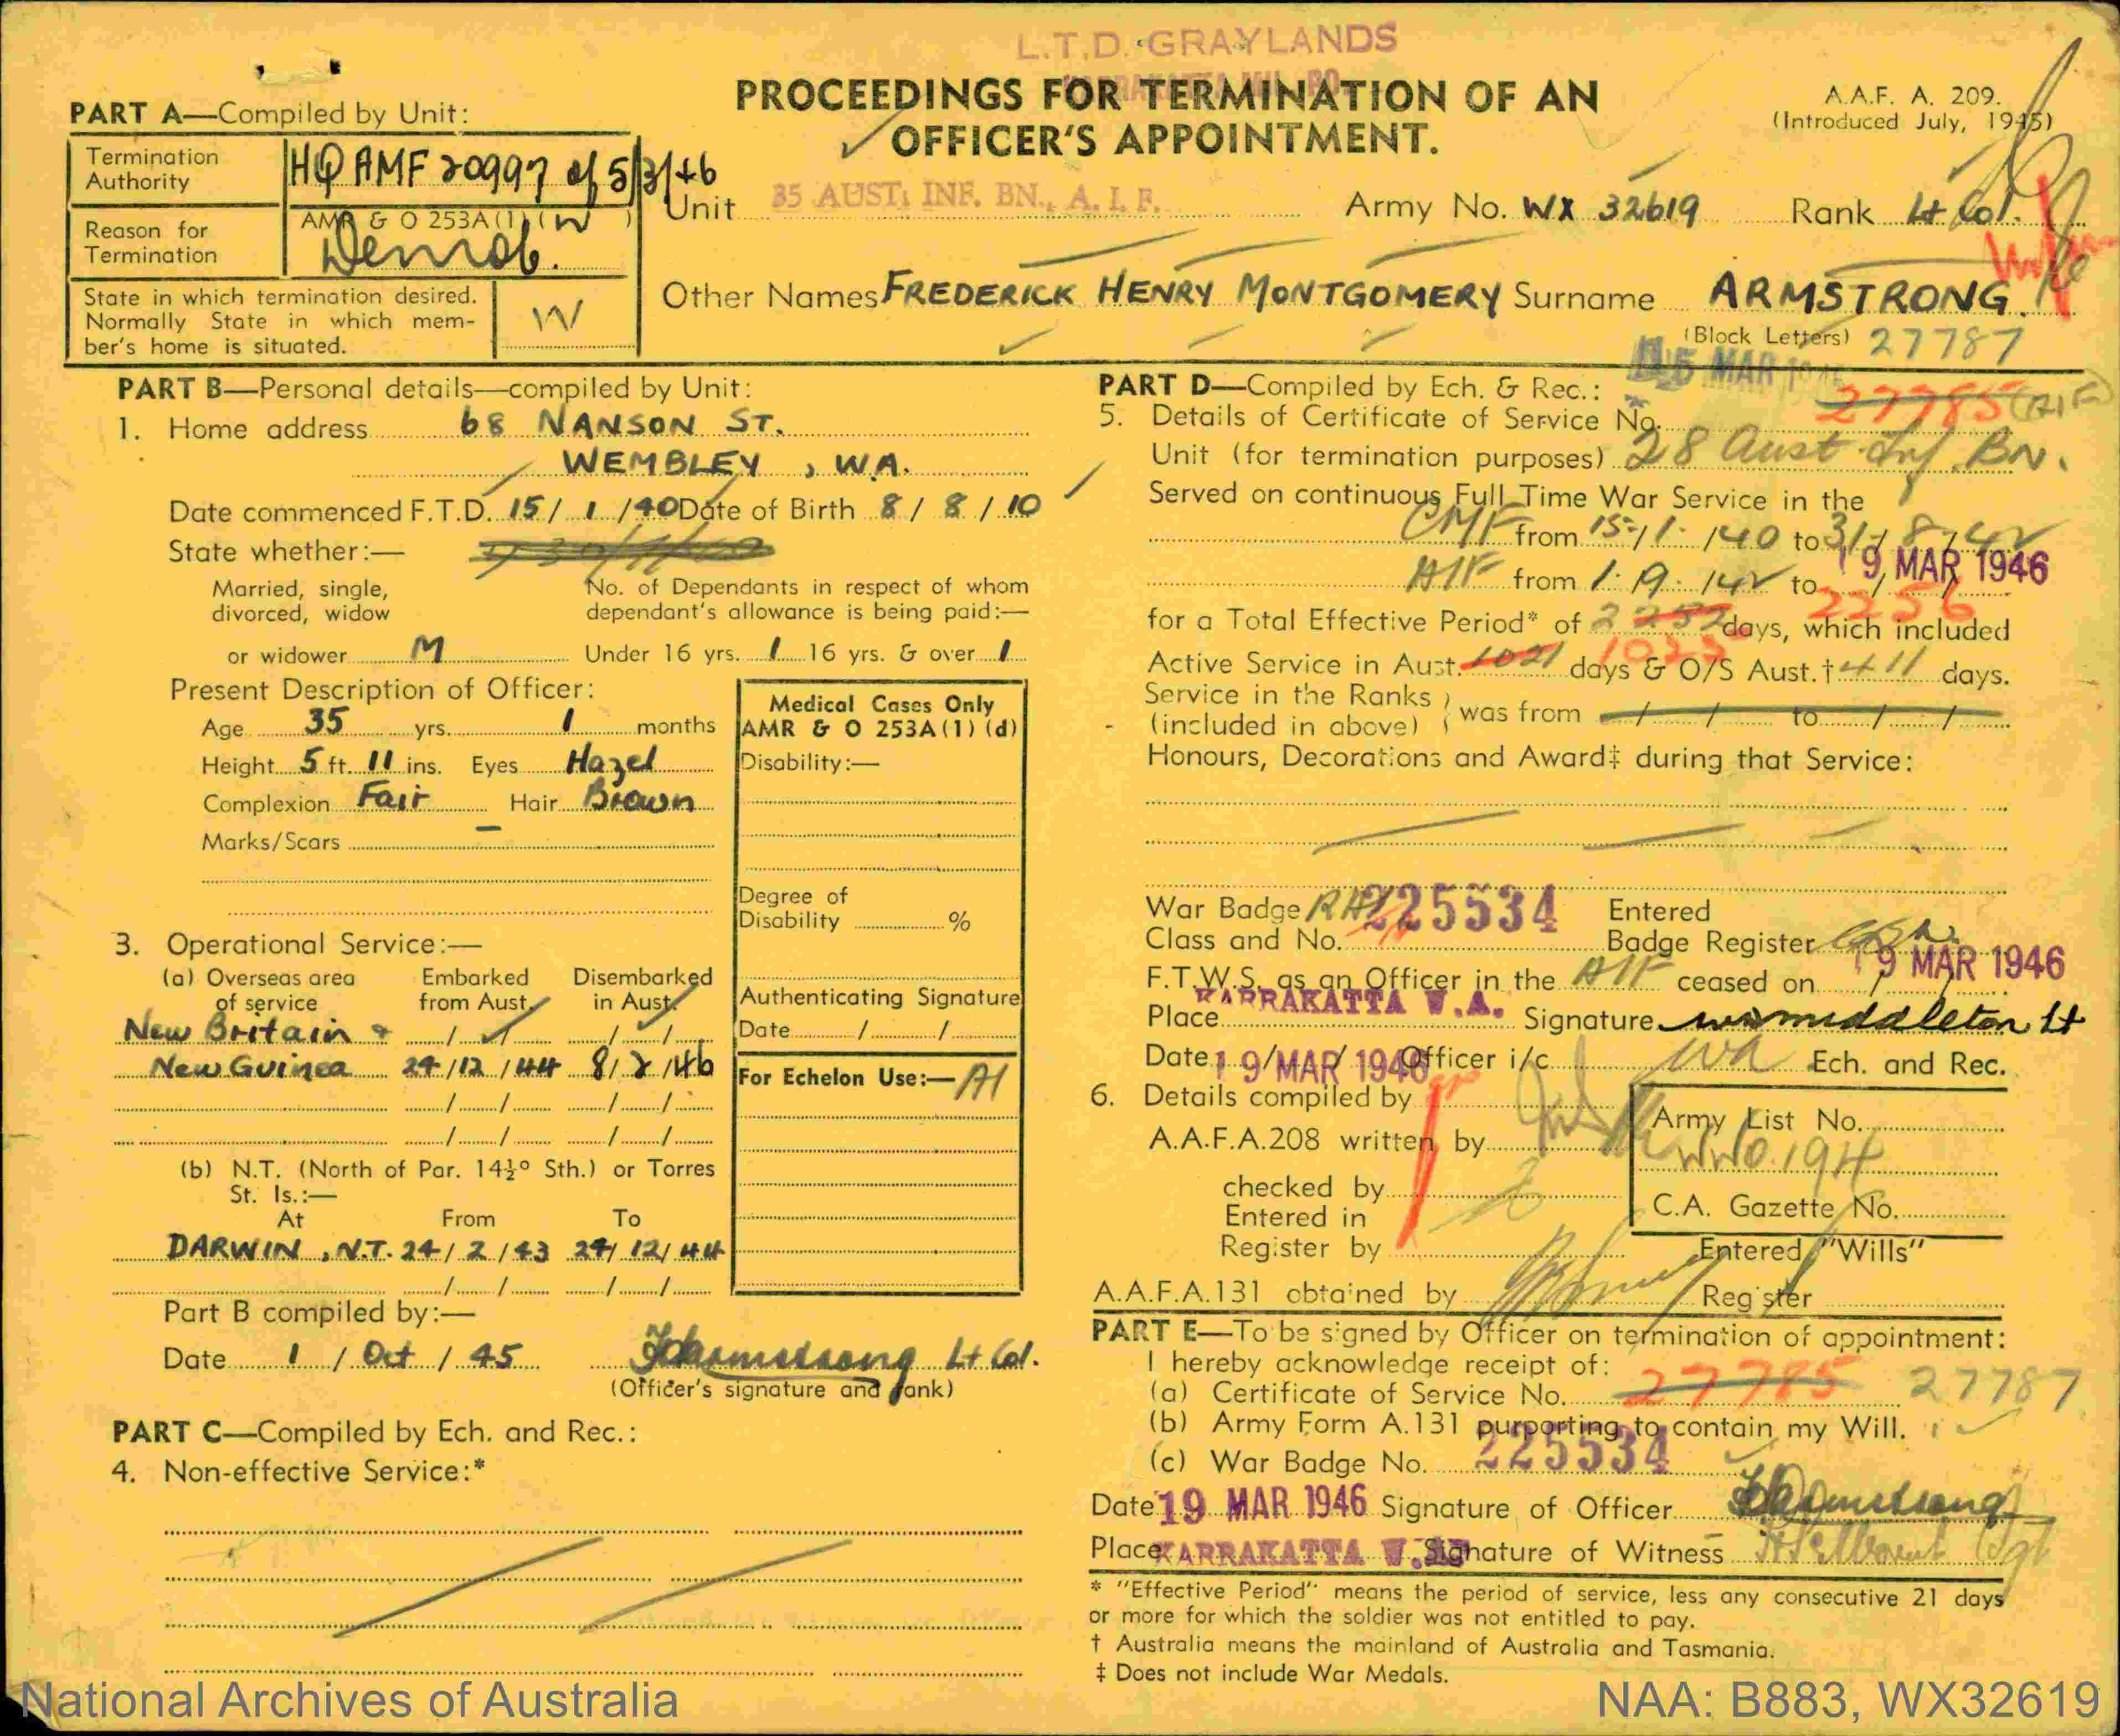 L.T.D. GRAYLANDS
PROCEEDINGS FOR TERMINATION OF AN
OFFICER'S APPOINTMENT.
A.A.F. A. 209.
(Introduced July, 1945)
PART A—Compiled by Unit:
Termination Authority HQ AMF 20997 of 5/3/46
Reason for Termination AMR & O 253A(1) (W )
Demob.
State in which termination desired. Normally State in which mem-
ber's home is situated. W
Unit 35 AUST. INF. BN., A. I. F. Army No. WX 32619 Rank Lt Col.
Other Names FREDERICK HENRY MONTGOMERY Surname ARMSTRONG.
(Block Letters) 27787
PART B—Personal details—compiled by Unit:
1. Home address 68 NANSON ST.
WEMBLEY, W.A.
Date commenced F.T.D. 15/ 1 /40 Date of Birth 8/ 8 / 10
State whether:—
Married, single, divorced, widow or widower M
No. of Dependants in respect of whom dependant's allowance is being paid:—
Under 16 yrs. 1 16 yrs. & over 1
Present Description of Officer:
Age 35 yrs. 1 months
Height 5 ft. 11 ins. Eyes Hazel
Complexion Fair Hair Brown
Marks/Scars —
Medical Cases Only
AMR & O 253A(1) (d)
Disability:—
Degree of
Disability %
Authenticating Signature
Date / /
For Echelon Use:— A1
3. Operational Service:—
(a) Overseas area of service Embarked from Aust. Disembarked in Aust.
New Britain & / / / /
New Guinea 24/12/44 8/2/46
/ / / /
/ / / /
(b) N.T. (North of Par. 14½° Sth.) or Torres
St. Is.:—
At From To
DARWIN, N.T. 24/2/43 24/12/44
/ / / /
Part B compiled by:—
Date 1 / Oct / 45 FHArmstrong Lt Col.
(Officer's signature and rank)
PART C—Compiled by Ech. and Rec.:
4. Non-effective Service:*
PART D—Compiled by Ech. & Rec.: MAR
5. Details of Certificate of Service No. 27785 (AIF)
Unit (for termination purposes) 28 Aust Inf. BN.
Served on continuous Full Time War Service in the
CMF from 15/1/40 to 31/8/42
AIF from 1/9/42 to 19 MAR 1946
for a Total Effective Period* of 2256 days, which included
Active Service in Aust. 1021 days & O/S Aust.† 411 days.
Service in the Ranks (included in above) was from / / to / /
Honours, Decorations and Award‡ during that Service:
War Badge Class and No. RAS 225534 Entered
Badge Register
F.T.W.S. as an Officer in the AIF ceased on 19 MAR 1946
Place KARRAKATTA W.A. Signature W Middleton Lt
Date 19 MAR 1946 Officer i/c WA Ech. and Rec.
6. Details compiled by
A.A.F.A.208 written by
checked by
Entered in
Register by
Army List No.
WNO.194
C.A. Gazette No.
Entered "Wills"
A.A.F.A.131 obtained by Register
PART E—To be signed by Officer on termination of appointment:
I hereby acknowledge receipt of:
(a) Certificate of Service No. 27785 27787
(b) Army Form A.131 purporting to contain my Will.
(c) War Badge No. 225534
Date 19 MAR 1946 Signature of Officer FHArmstrong
Place KARRAKATTA W.A. Signature of Witness Sgt
* "Effective Period" means the period of service, less any consecutive 21 days
or more for which the soldier was not entitled to pay.
† Australia means the mainland of Australia and Tasmania.
‡ Does not include War Medals.
National Archives of Australia
NAA: B883, WX32619